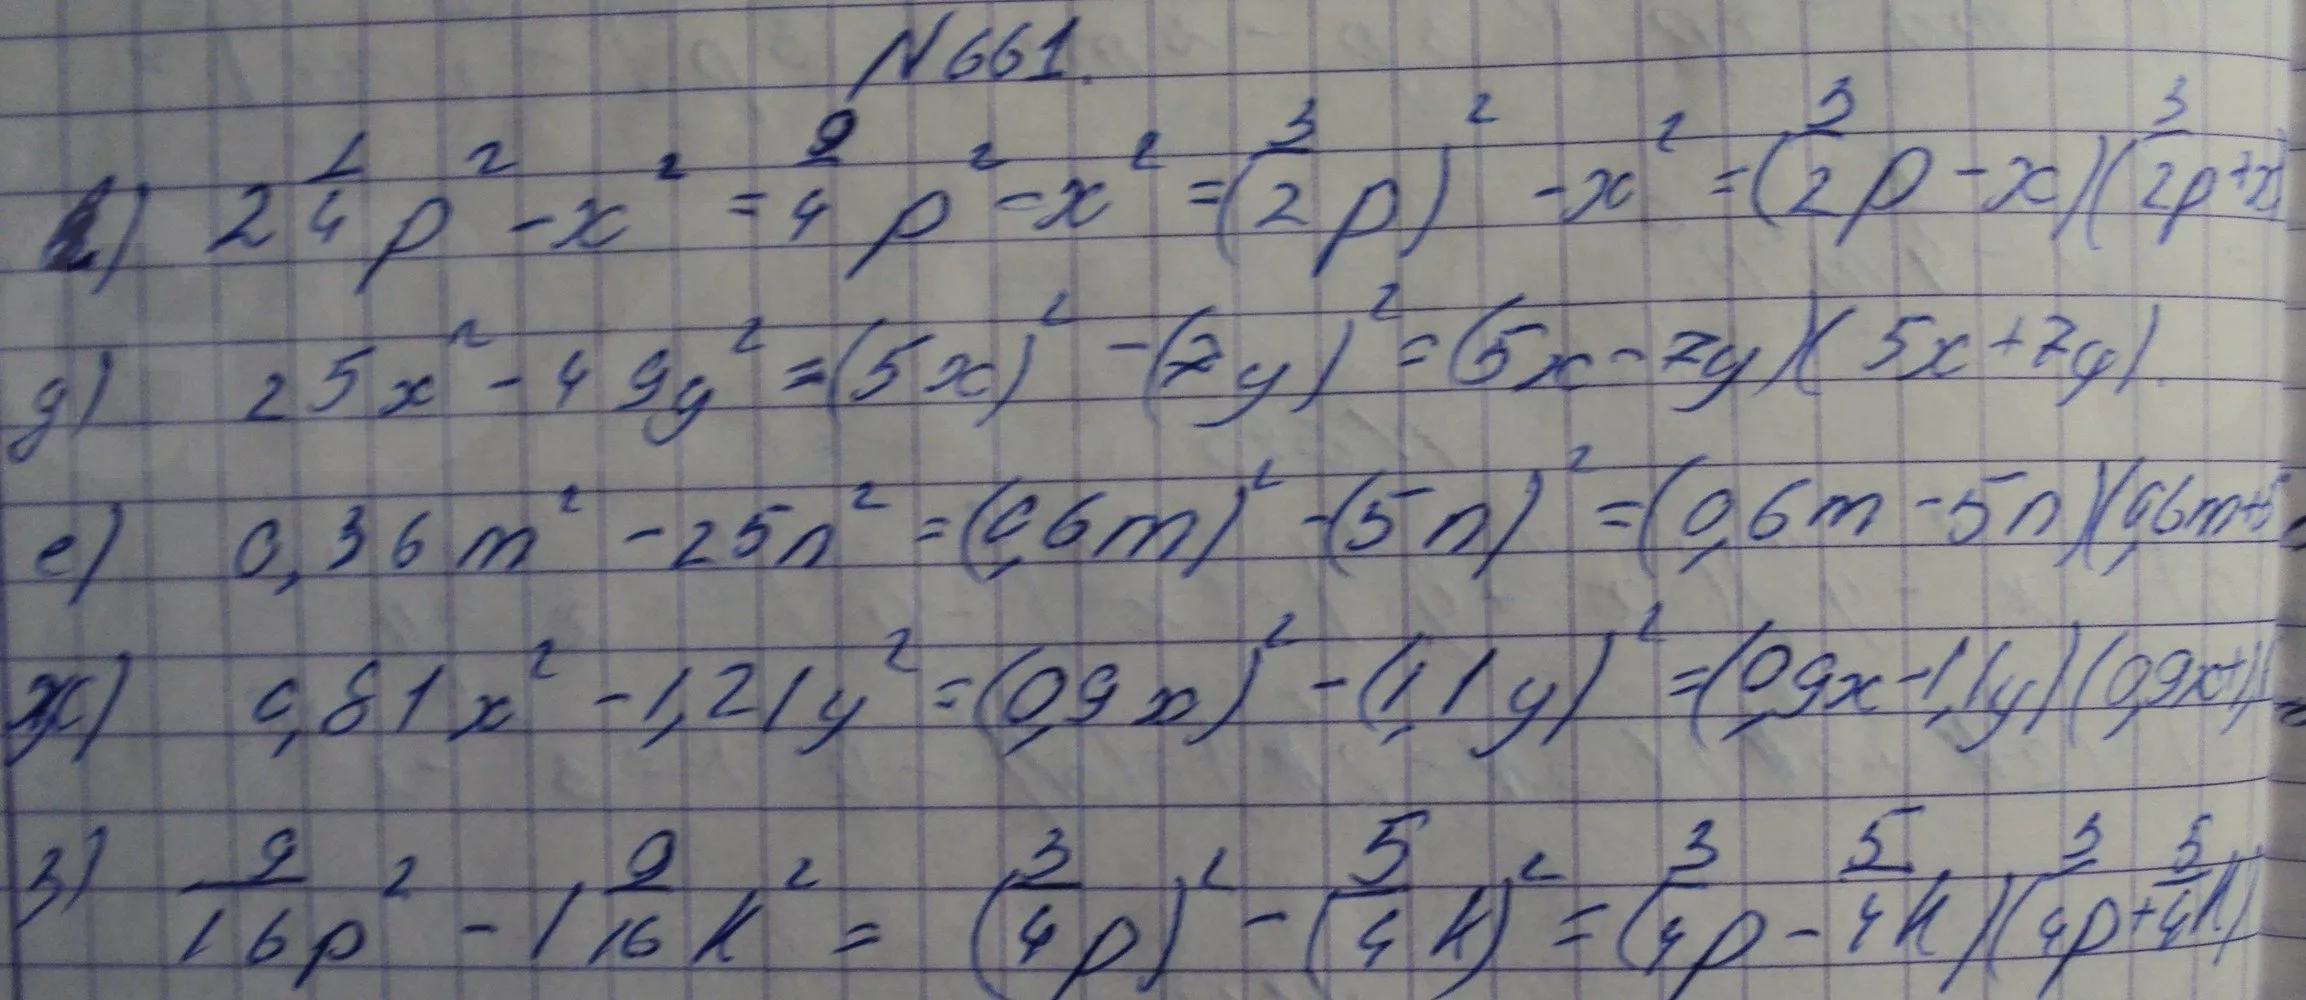 N 661.
г) 2 1/4 p² - x² = 9/4 p² - x² = (3/2 p)² - x² = (3/2 p - x)(3/2 p + x)
д) 25x² - 49y² = (5x)² - (7y)² = (5x - 7y)(5x + 7y).
е) 0,36m² - 25n² = (0,6m)² - (5n)² = (0,6m - 5n)(0,6m + 5
ж) 0,81x² - 1,21y² = (0,9x)² - (1,1y)² = (0,9x - 1,1y)(0,9x + 1,1
з) 9/16 p² - 1 9/16 k² = (3/4 p)² - (5/4 k)² = (3/4 p - 5/4 k)(3/4 p + 5/4 k)